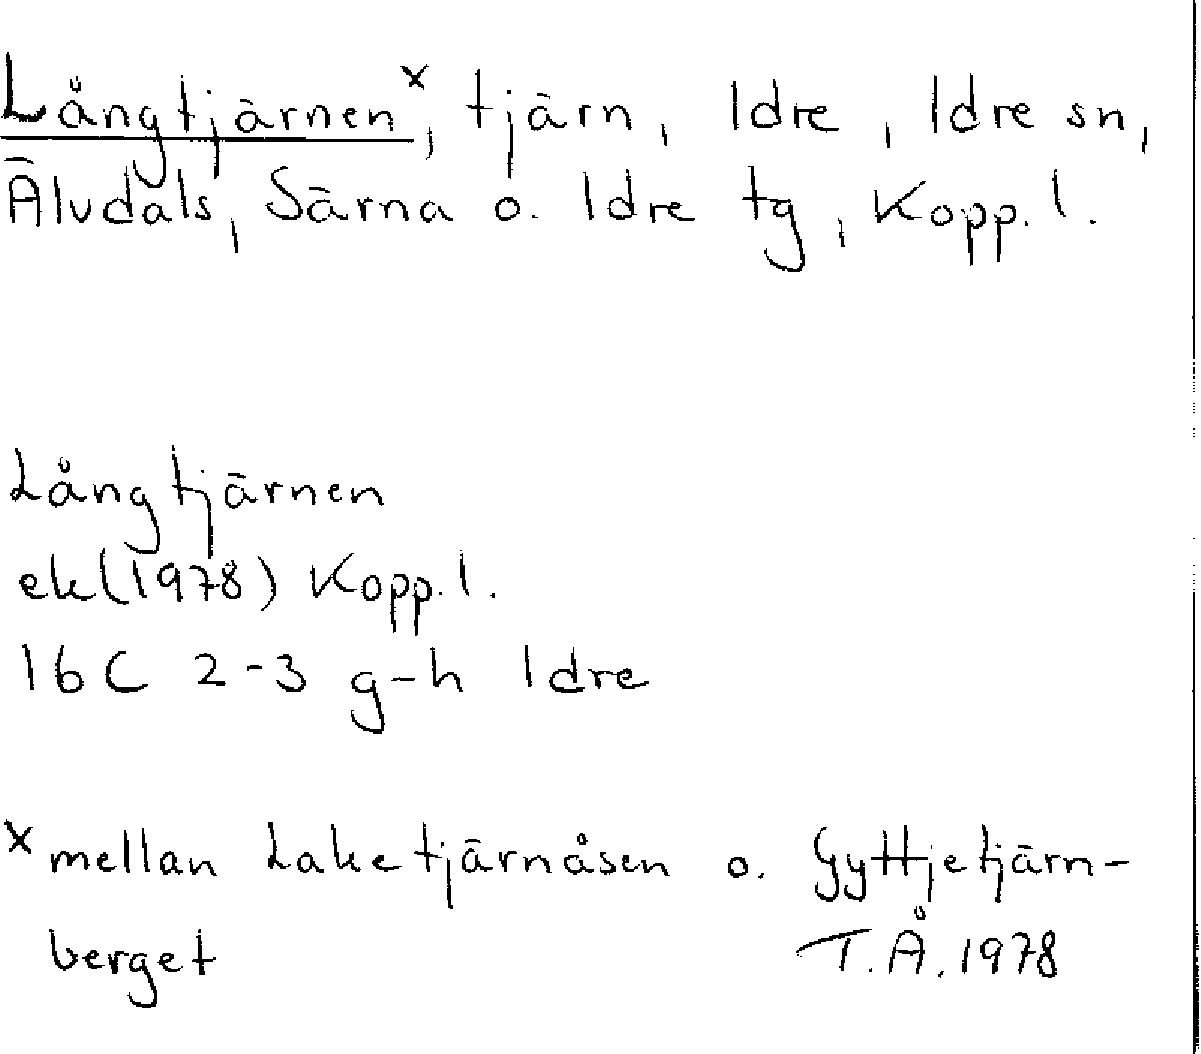 Långtjärnen x, tjärn, Idre, Idre sn,
Älvdals, Särna o. Idre tg, Kopp. l.
Långtjärnen
ek(1978) Kopp. l.
16C 2-3 g-h Idre
x mellan Laketjärnåsen o. Gyttjetjärn-
berget T.Å. 1978